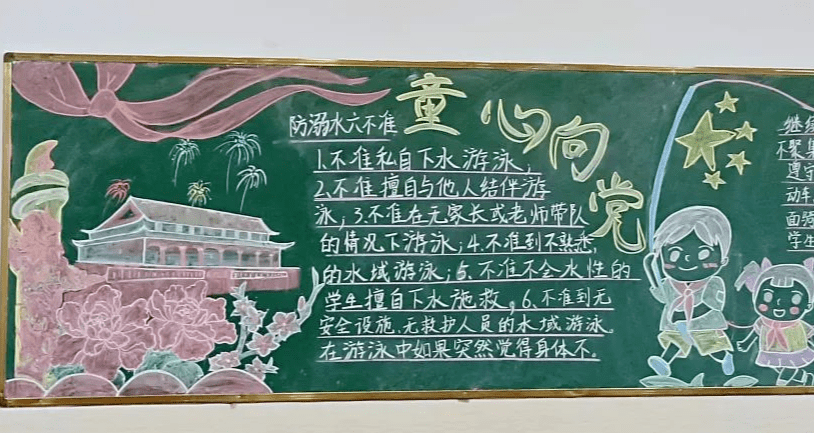 童心向党
防溺水六不准
1.不准私自下水游泳;
2.不准擅自与他人结伴游
泳;3.不准在无家长或老师带队
的情况下游泳;4.不准到不熟悉
的水域游泳;5.不准不会水性的
学生擅自下水施救。6.不准到无
安全设施、无救护人员的水域游泳。
在游泳中如果突然觉得身体不。
继续
不聚集
遵守
动车
面骑
学生